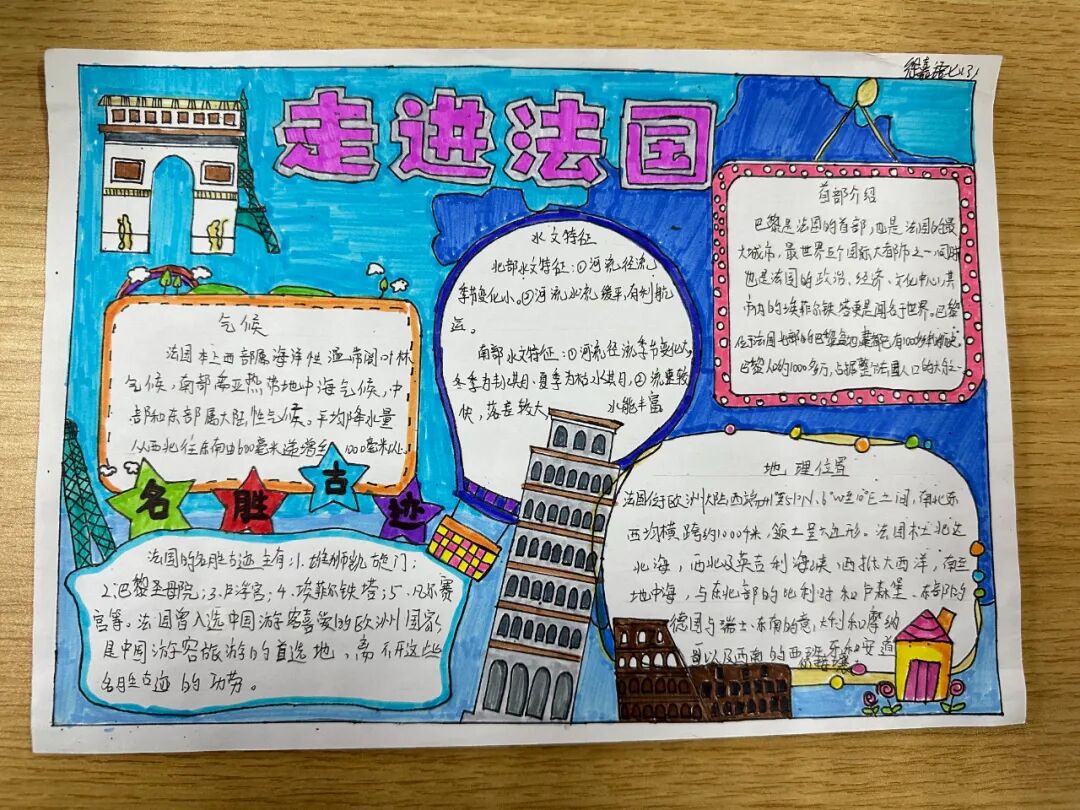 走进法国
气候
法国本土西部属海洋性温带阔叶林
气候,南部属亚热带地中海气候,中
部和东部属大陆性气候。平均降水量
从西北往东南由600毫米递增至1000毫米以上。
水文特征
北部水文特征:①河流径流
季节变化小。②河流水流缓平,有利航
运。
南部水文特征:①河流径流季节变化大,
冬季为丰水期,夏季为枯水期,②流速较
快,落差较大 水能丰富
首部介绍
巴黎是法国的首部,也是法国的最
大城市,最世界五个国际大都市之一同时
也是法国的政治、经济、文化中心,其
市内的埃菲尔铁塔更是闻名于世界。巴黎
位于法国北部的巴黎盆地
巴黎人口约1000多万,
名胜古迹
法国的名胜古迹主有:1.雄狮凯旋门;
2.巴黎圣母院;3.卢浮宫;4.埃菲尔铁塔;5.凡尔赛
宫等。法国曾入选中国游客喜爱的欧洲国家,
是中国游客旅游的首选地,离不开这些
名胜古迹的功劳。
地理位置
法国位于欧洲大陆西端 之间,南北东
西均横跨约1000千米,领土呈六边形。法国本土北达
北海,西北及英吉利海峡,西抵大西洋,南至
地中海,与东北部的比利时和卢森堡、东部的
德国与瑞士、东南的意大利和摩纳
哥以及西南的西班牙和安道